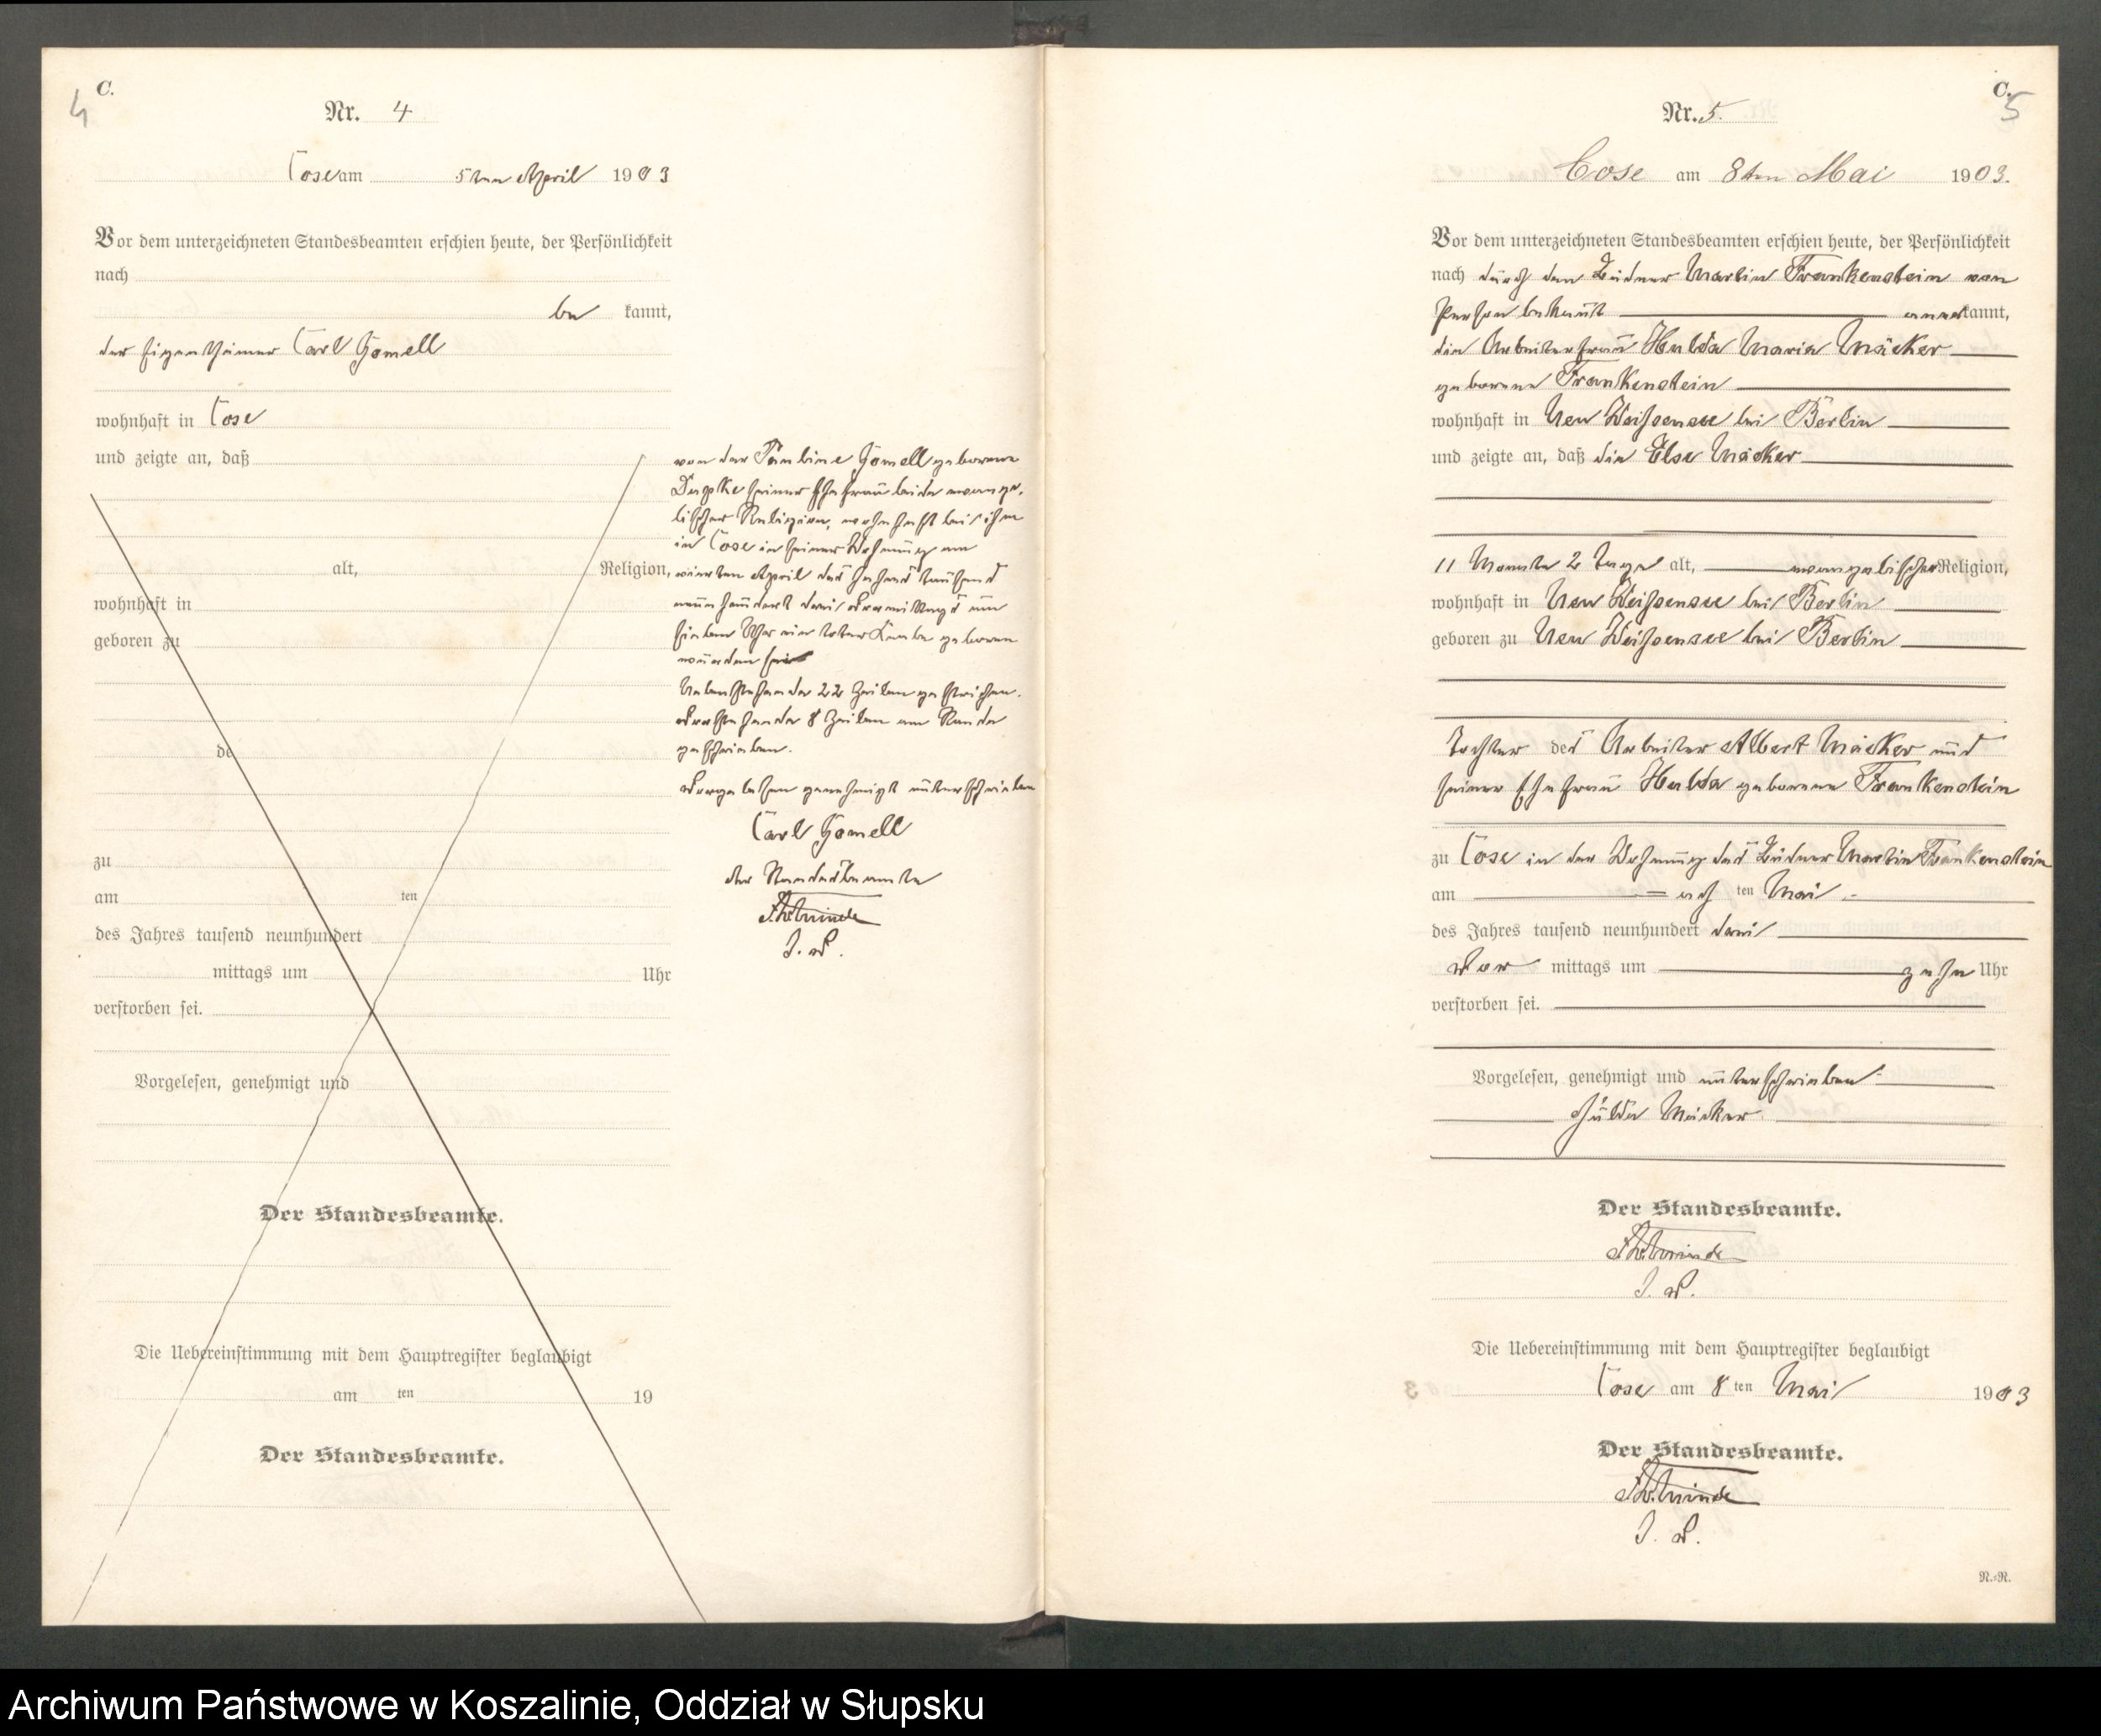 C.
4
Nr. 4
Cose am 5ten April 1903
Vor dem unterzeichneten Standesbeamten erschien heute, der Persönlichkeit
nach
be kannt,
der Eigenthümer Carl Gomell
wohnhaft in Cose
und zeigte an, daß
alt, Religion,
wohnhaft in
geboren zu
de
zu
am ten
des Jahres tausend neunhundert
mittags um Uhr
verstorben sei.
Vorgelesen, genehmigt und
Der Standesbeamte.
Die Uebereinstimmung mit dem Hauptregister beglaubigt
am ten 19
Der Standesbeamte.
von der Pauline Gomell geborene
seiner Ehefrau beide evange-
lischer Religion, wohnhaft bei ihm
in Cose in seiner Wohnung am
vierten April des Jahres tausend
neunhundert drei Vormittags um
sieben Uhr ein toter Knabe geboren
worden sei
Nebenstehende 22 Zeilen gestrichen.
Vorstehende 8 Zeilen am Rande
geschrieben.
Vorgelesen genehmigt unterschrieben
Carl Gomell
der Standesbeamte
I. V.
C.
5
Nr. 5.
Cose am 8ten Mai 1903.
Vor dem unterzeichneten Standesbeamten erschien heute, der Persönlichkeit
nach durch den Büdner Martin Frankenstein von
Person bekannt anerkannt,
die Arbeiterfrau Hulda Maria Mäcker
geborene Frankenstein
wohnhaft in Neu Weißensee bei Berlin
und zeigte an, daß die Else Mäcker
11 Monate 2 Tage alt, evangelischer Religion,
wohnhaft in Neu Weißensee bei Berlin
geboren zu Neu Weißensee bei Berlin
Tochter des Arbeiter Albert Mäcker und
seiner Ehefrau Hulda geborene Frankenstein
zu Cose in der Wohnung des Büdner Martin Frankenstein
am = ach ten Mai
des Jahres tausend neunhundert drei
Vor mittags um zehn Uhr
verstorben sei.
Vorgelesen, genehmigt und unterschrieben
Hulda Mäcker
Der Standesbeamte.
I. V.
Die Uebereinstimmung mit dem Hauptregister beglaubigt
Cose am 8 ten Mai 1903
Der Standesbeamte.
I. V.
N.-N.
Archiwum Państwowe w Koszalinie, Oddział w Słupsku